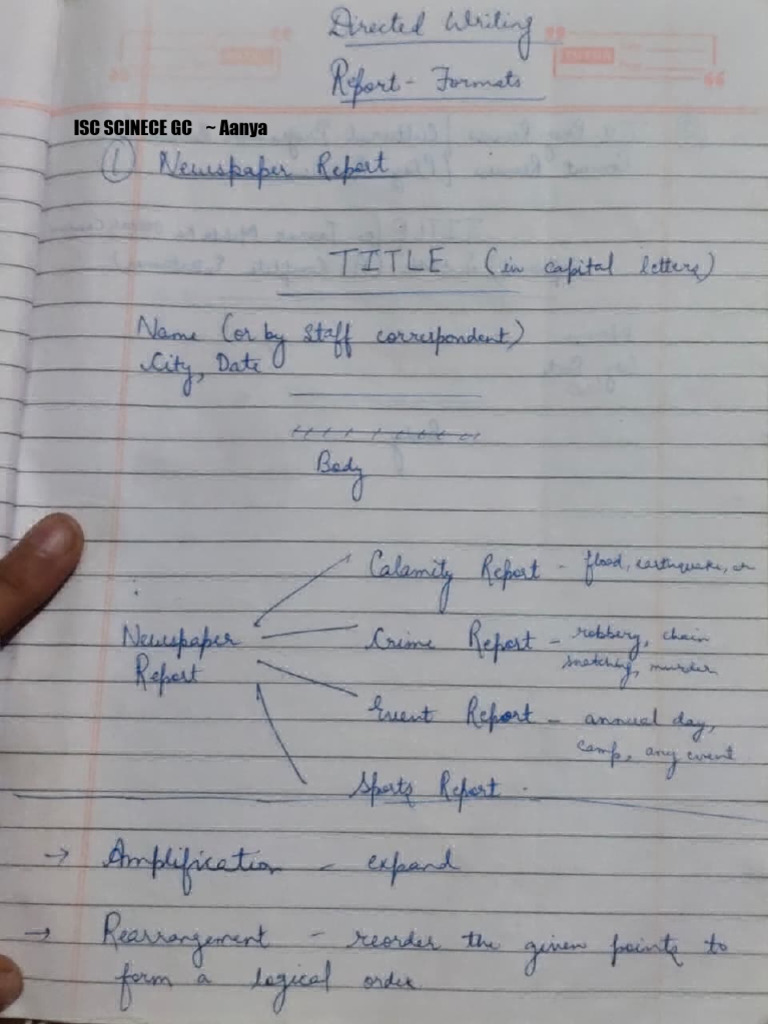 Directed Writing
Report - Formats
ISC SCINECE GC ~ Aanya
① Newspaper Report
TITLE (in capital letters)
Name (or by staff correspondent)
City, Date
Body
Calamity Report - flood, earthquake,
Newspaper Report
Crime Report - robbery, chain
snatching, murder
Event Report - annual day,
camp, any event
Sports Report
→ Amplification - expand
→ Rearrangement - reorder the given points to
form a logical order